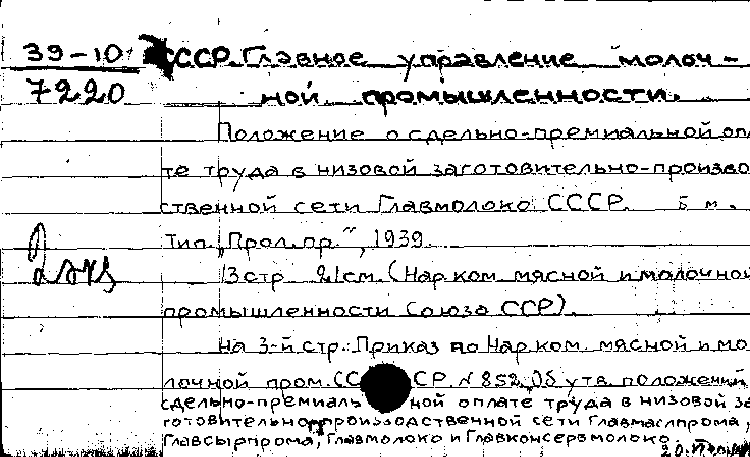 39-10
7220
СССР. Главное управление молоч-
ной промышленности.
Положение о сдельно-премиальной опла
те труда в низовой заготовительно-произво
ственной сети Главмолоко СССР. 5 м.
Тип. "Прол. пр.", 1939.
13 стр 21 см. (Нар. ком. мясной и молочной
промышленности Союза ССР).
На 3-й стр.: Приказ по Нар. ком. мясной и мо
лочной пром. СССР. N 852. Об утв. положений
сдельно-премиальной оплате труда в низовой за
готовительно-производственной сети Главмаслпрома,
Главсырпрома, Главмолоко и Главконсервмолоко.